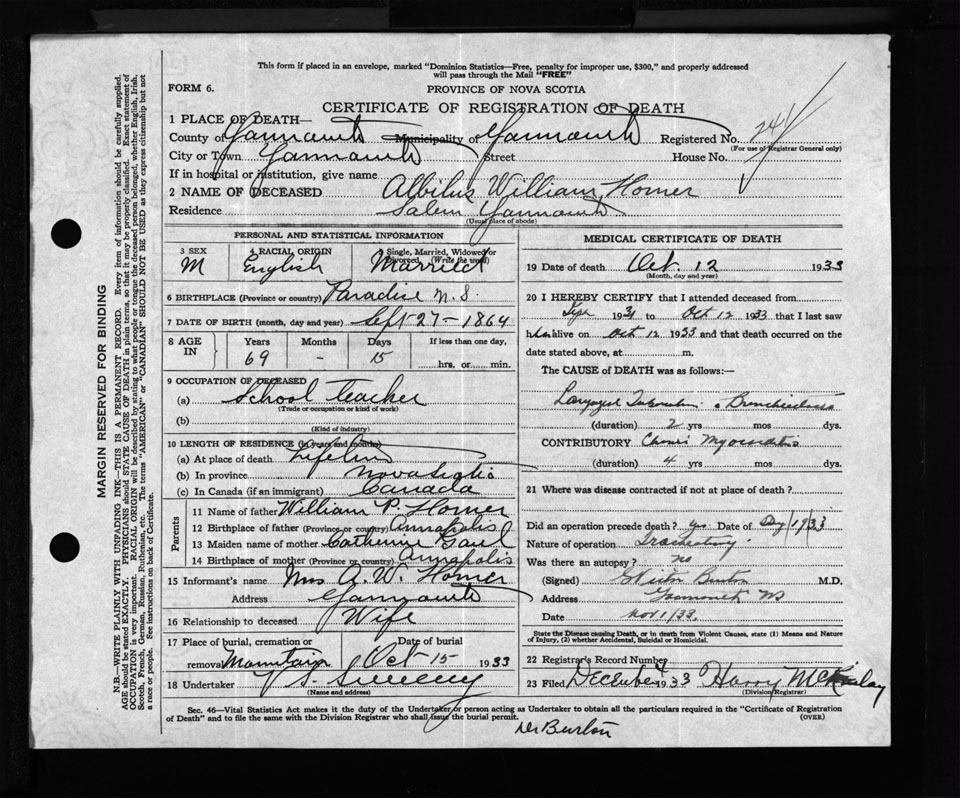 This form if placed in an envelope, marked "Dominion Statistics—Free, penalty for improper use, $300," and properly addressed
will pass through the Mail "FREE"
FORM 6.
PROVINCE OF NOVA SCOTIA
CERTIFICATE OF REGISTRATION OF DEATH
1 PLACE OF DEATH—
County of Yarmouth Municipality of Yarmouth Registered No. 741
(For use of Registrar General only)
City or Town Yarmouth Street House No.
If in hospital or institution, give name
2 NAME OF DECEASED Albilus William Horner
Residence Salem Yarmouth
(Usual place of abode)
PERSONAL AND STATISTICAL INFORMATION
3 SEX M
4 RACIAL ORIGIN English
5 Single, Married, Widowed or Divorced (Write the word) Married
6 BIRTHPLACE (Province or country) Paradise N.S.
7 DATE OF BIRTH (month, day and year) Sept 27-1864
8 AGE IN Years Months Days If less than one day,
69 - 15 hrs. or min.
9 OCCUPATION OF DECEASED
(a) School teacher
(Trade or occupation or kind of work)
(b)
(Kind of industry)
10 LENGTH OF RESIDENCE (in years and months)
(a) At place of death Lifetime
(b) In province Nova Scotia
(c) In Canada (if an immigrant) Canada
Parents
11 Name of father William P. Horner
12 Birthplace of father (Province or country) Annapolis
13 Maiden name of mother Catherine Gaul
14 Birthplace of mother (Province or country) Annapolis
15 Informant's name Mrs A. W. Horner
Address Yarmouth
16 Relationship to deceased Wife
17 Place of burial, cremation or removal Mountain Date of burial Oct-15 1933
18 Undertaker V. S. Sweeny
(Name and address)
MEDICAL CERTIFICATE OF DEATH
19 Date of death Oct. 12 1933
(Month, day and year)
20 I HEREBY CERTIFY that I attended deceased from
1931 to Oct 12 1933 that I last saw
h alive on Oct 12 1933 and that death occurred on the
date stated above, at m.
The CAUSE of DEATH was as follows:—
Laryngeal
(duration) 2 yrs mos dys.
CONTRIBUTORY Chronic Myocarditis
(duration) 4 yrs mos dys.
21 Where was disease contracted if not at place of death?
Did an operation precede death? yes Date of 1933
Nature of operation Tracheotomy
Was there an autopsy? no
(Signed) Burton M.D.
Address Yarmouth NS
Date Nov 1/33.
State the Disease causing Death, or in death from Violent Causes, state (1) Means and Nature
of Injury, (2) whether Accidental, Suicidal or Homicidal.
22 Registrar's Record Number
23 Filed December 4 1933 Harry McKinlay
(Division Registrar)
Sec. 46—Vital Statistics Act makes it the duty of the Undertaker or person acting as Undertaker to obtain all the particulars required in the "Certificate of Registration
of Death" and to file the same with the Division Registrar who shall issue the burial permit. (OVER)
Dr Burton
MARGIN RESERVED FOR BINDING
N.B.—WRITE PLAINLY WITH UNFADING INK—THIS IS A PERMANENT RECORD. Every item of information should be carefully supplied.
AGE should be stated EXACTLY. PHYSICIANS should STATE CAUSE OF DEATH in plain terms, so that it may be properly classified. Exact statement of
OCCUPATION is very important. RACIAL ORIGIN will be described by stating to what people or tongue the deceased person belonged, whether English, Irish,
Scotch, French, German, Russian, Ruthenian, etc. The terms "AMERICAN" or "CANADIAN" SHOULD NOT BE USED as they express citizenship but not
a race or people. See instructions on back of Certificate.